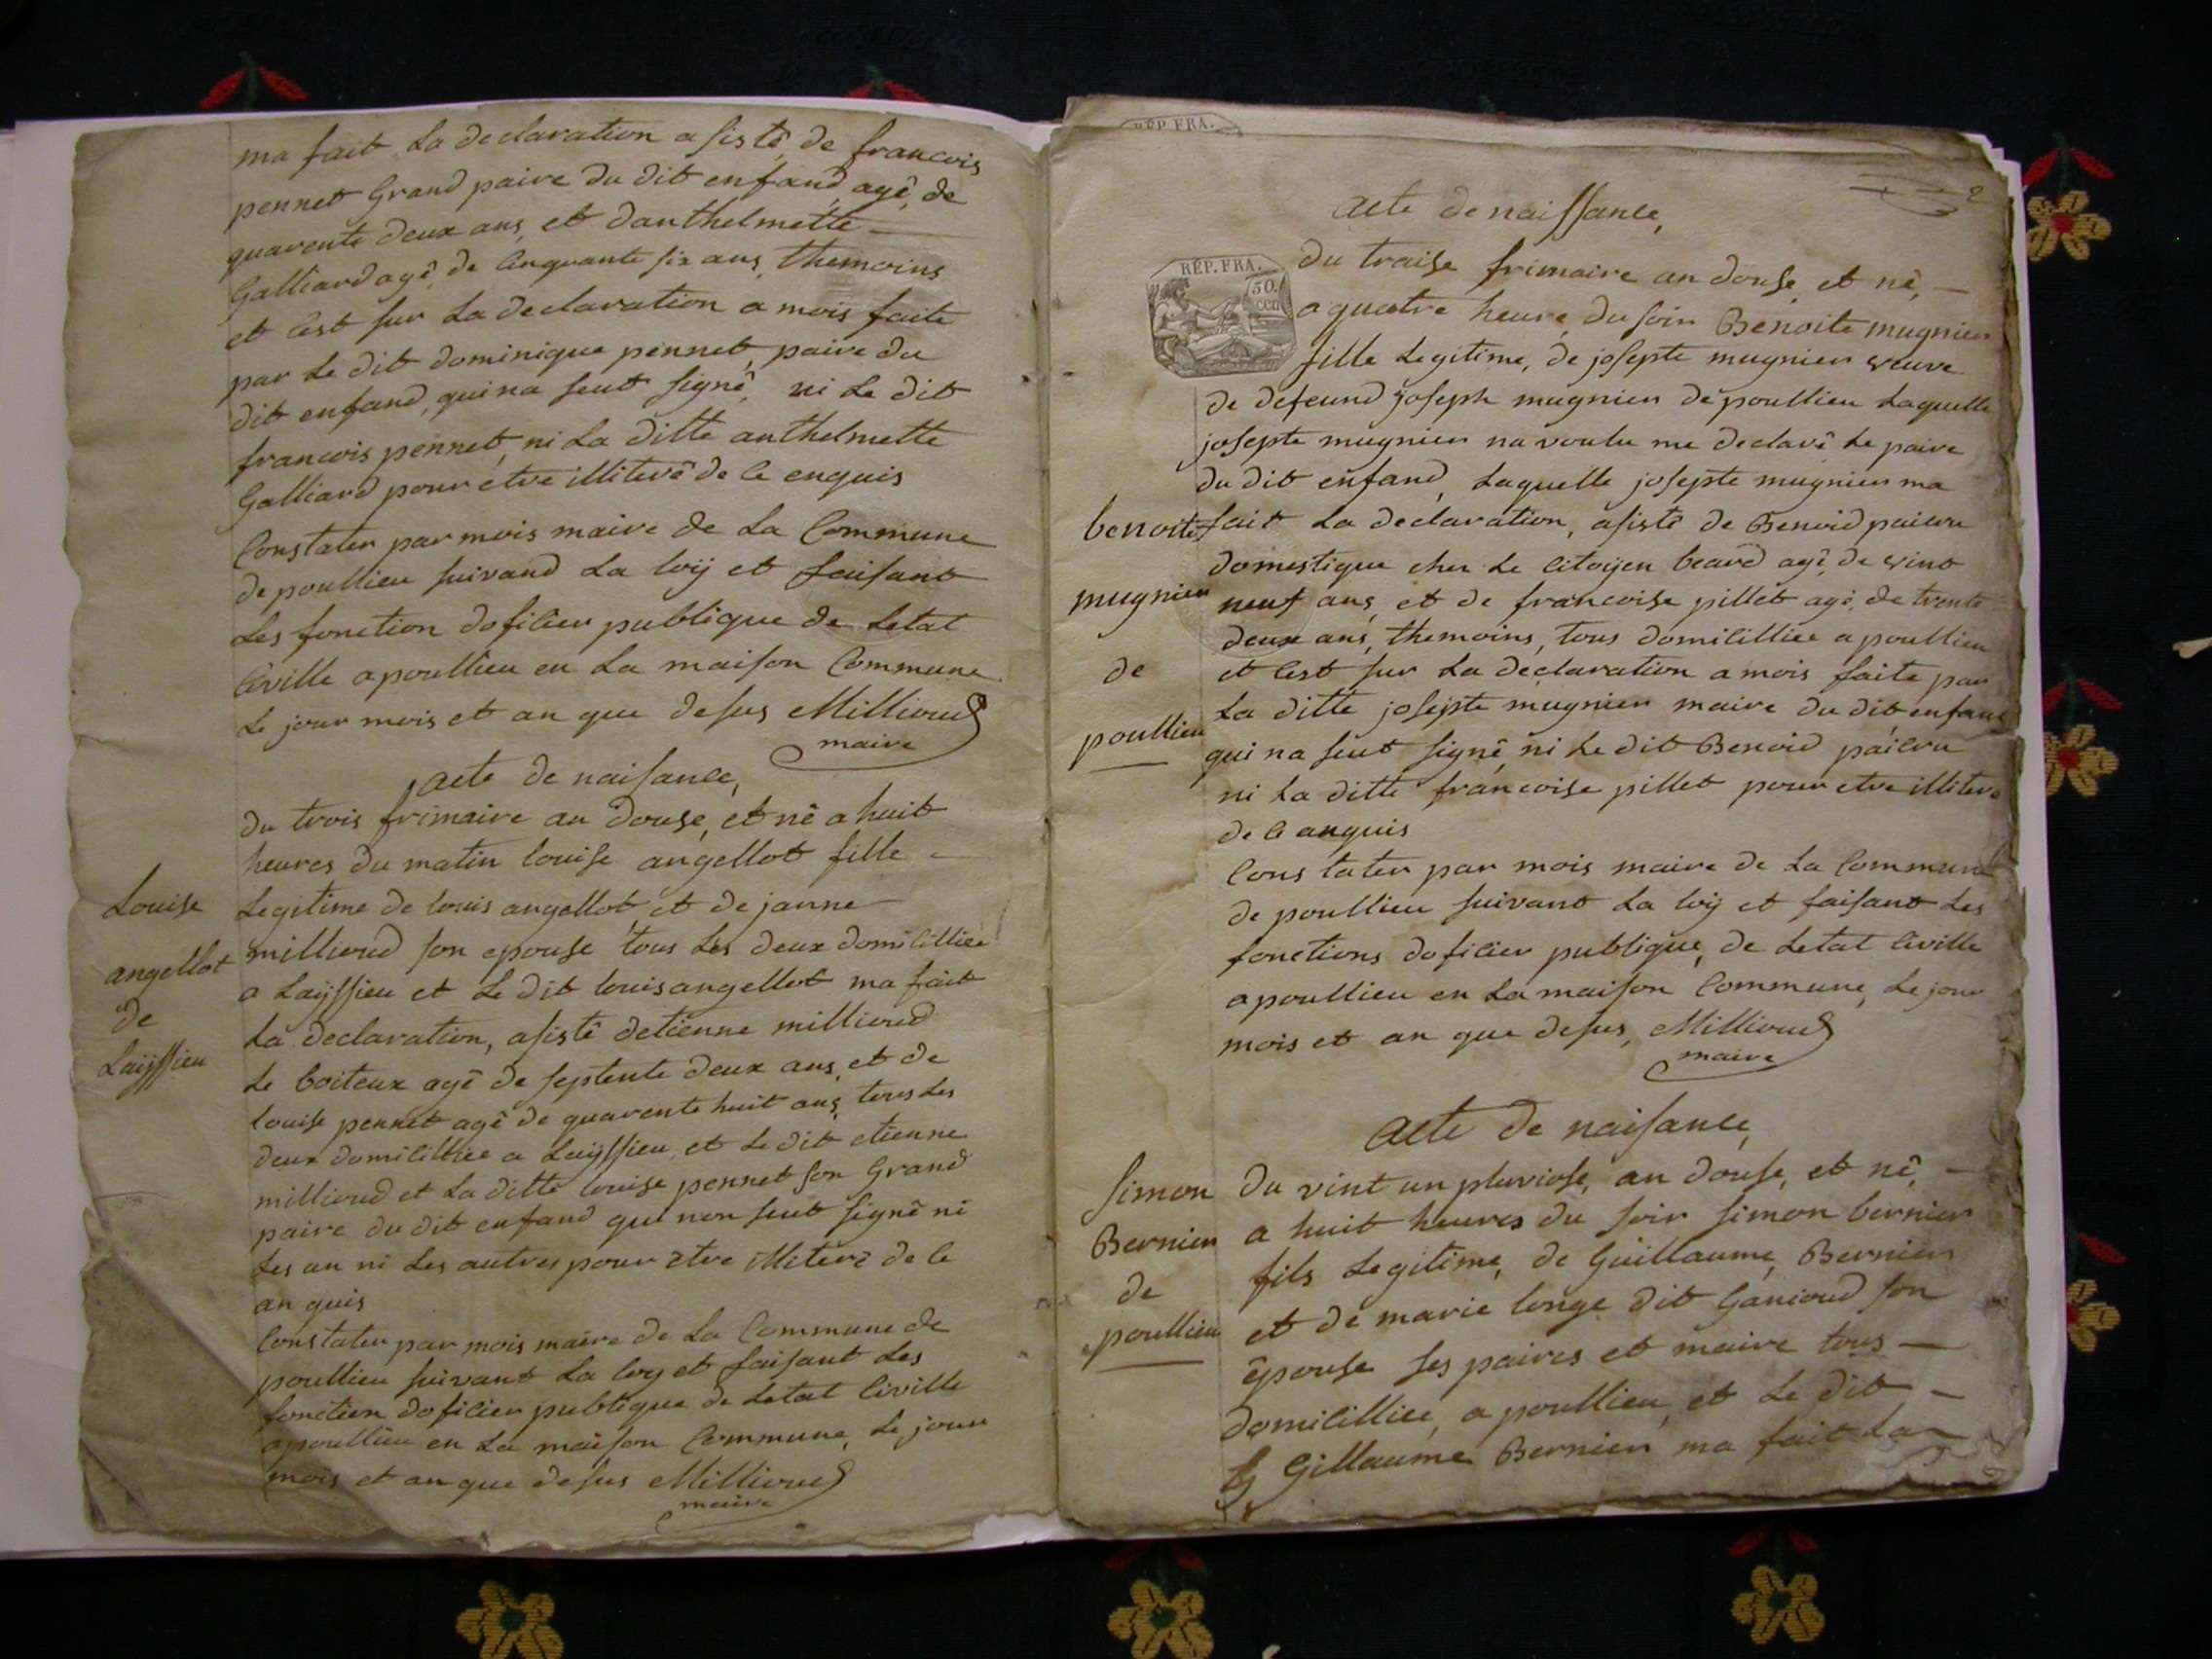 ma fait La declaration asistê de francois
pennet Grand paire du dit enfand agê de
quarente deux ans, et danthelmette
Galliard agê de Cinquante six ans, themoins
et Cest sur La declaration a mois faite
par Le dit dominique pennet, paire du
dit enfand, qui na seut signê, ni Le dit
francois pennet, ni La ditte anthelmette
Galliard pour etre illiterê de Ce enquis
Constater par mois maire de La Commune
de poullieu suivand La loÿ et faisant
Les fonction dofisier publique de Letat
Civille a poullieu en La maison Commune
Le jour mois et an que desus Millioud
maire
acte de naisance,
du trois frimaire an douse, et nê a huit
heures du matin louise angellot fille
Legitime de louis angellot et de janne
millioud son epouse tous Les deux domicilliee
a Laÿssieu et Le dit louis angellot ma fait
La declaration, asistê detienne millioud
Le boiteux agê de septente deux ans, et de
louise pennet agê de quarente huit ans, tous Les
deux domicilliee a Laÿssieu, et Le dit etienne
millioud et La ditte louise pennet son Grand
paire du dit enfand qui non seut signê ni
Les un ni Les autres pour etre illiterê de Ce
an quis
Constater par mois maire de La Commune de
poullieu suivant La loy et faisant Les
fonction dofisier publique de Letat Civille
a poullieu en La maison Commune, Le jour
mois et an que desus Millioud
maire
Louise
angellot
de
Laÿssieu
RÉP. FRA.
2
acte de naissance,
RÉP. FRA.
50.
cen
du traise frimaire an douse, et nê,
a quatre heure, du soir Benoite mugnier
fille Legitime, de josepte mugnier veuve
de defeund joseph mugnier de poullieu Laquelle
josepte mugnier na voulu me declarê Le paire
du dit enfand, Laquelle josepte mugnier ma
fait La declaration, asistê de Benoid
domestique cher Le Citoÿen beard agê, de vint
neuf ans, et de francoise pillet agê, de trente
deux ans, themoins, tous domicilliee a poullieu
et Cest sur La declaration a mois faite par
La ditte josepte mugnier maire du dit enfand
qui na seut signê, ni Le dit Benoid
ni La ditte francoise pillet pour etre illiterê
de Ce anquis
Constater par mois maire de La Commune
de poullieu suivant La loÿ et faisant Les
fonctions dofisier publique, de Letat Civille
a poullieu en La maison Commune, Le jour
mois et an que desus, Millioud
maire
benoite
mugnier
de
poullieu
acte de naisance,
du vint un pluviose, an douse, et nê,
a huit heures du soir simon bernier
fils Legitime, de Guillaume, Bernier
et de marie longe dit Ganioud son
êpouse ses paires et maire tous
domicilliee, a poullieu, et Le dit
Gillaume Bernier ma fait La
simon
Bernier
de
poullieu